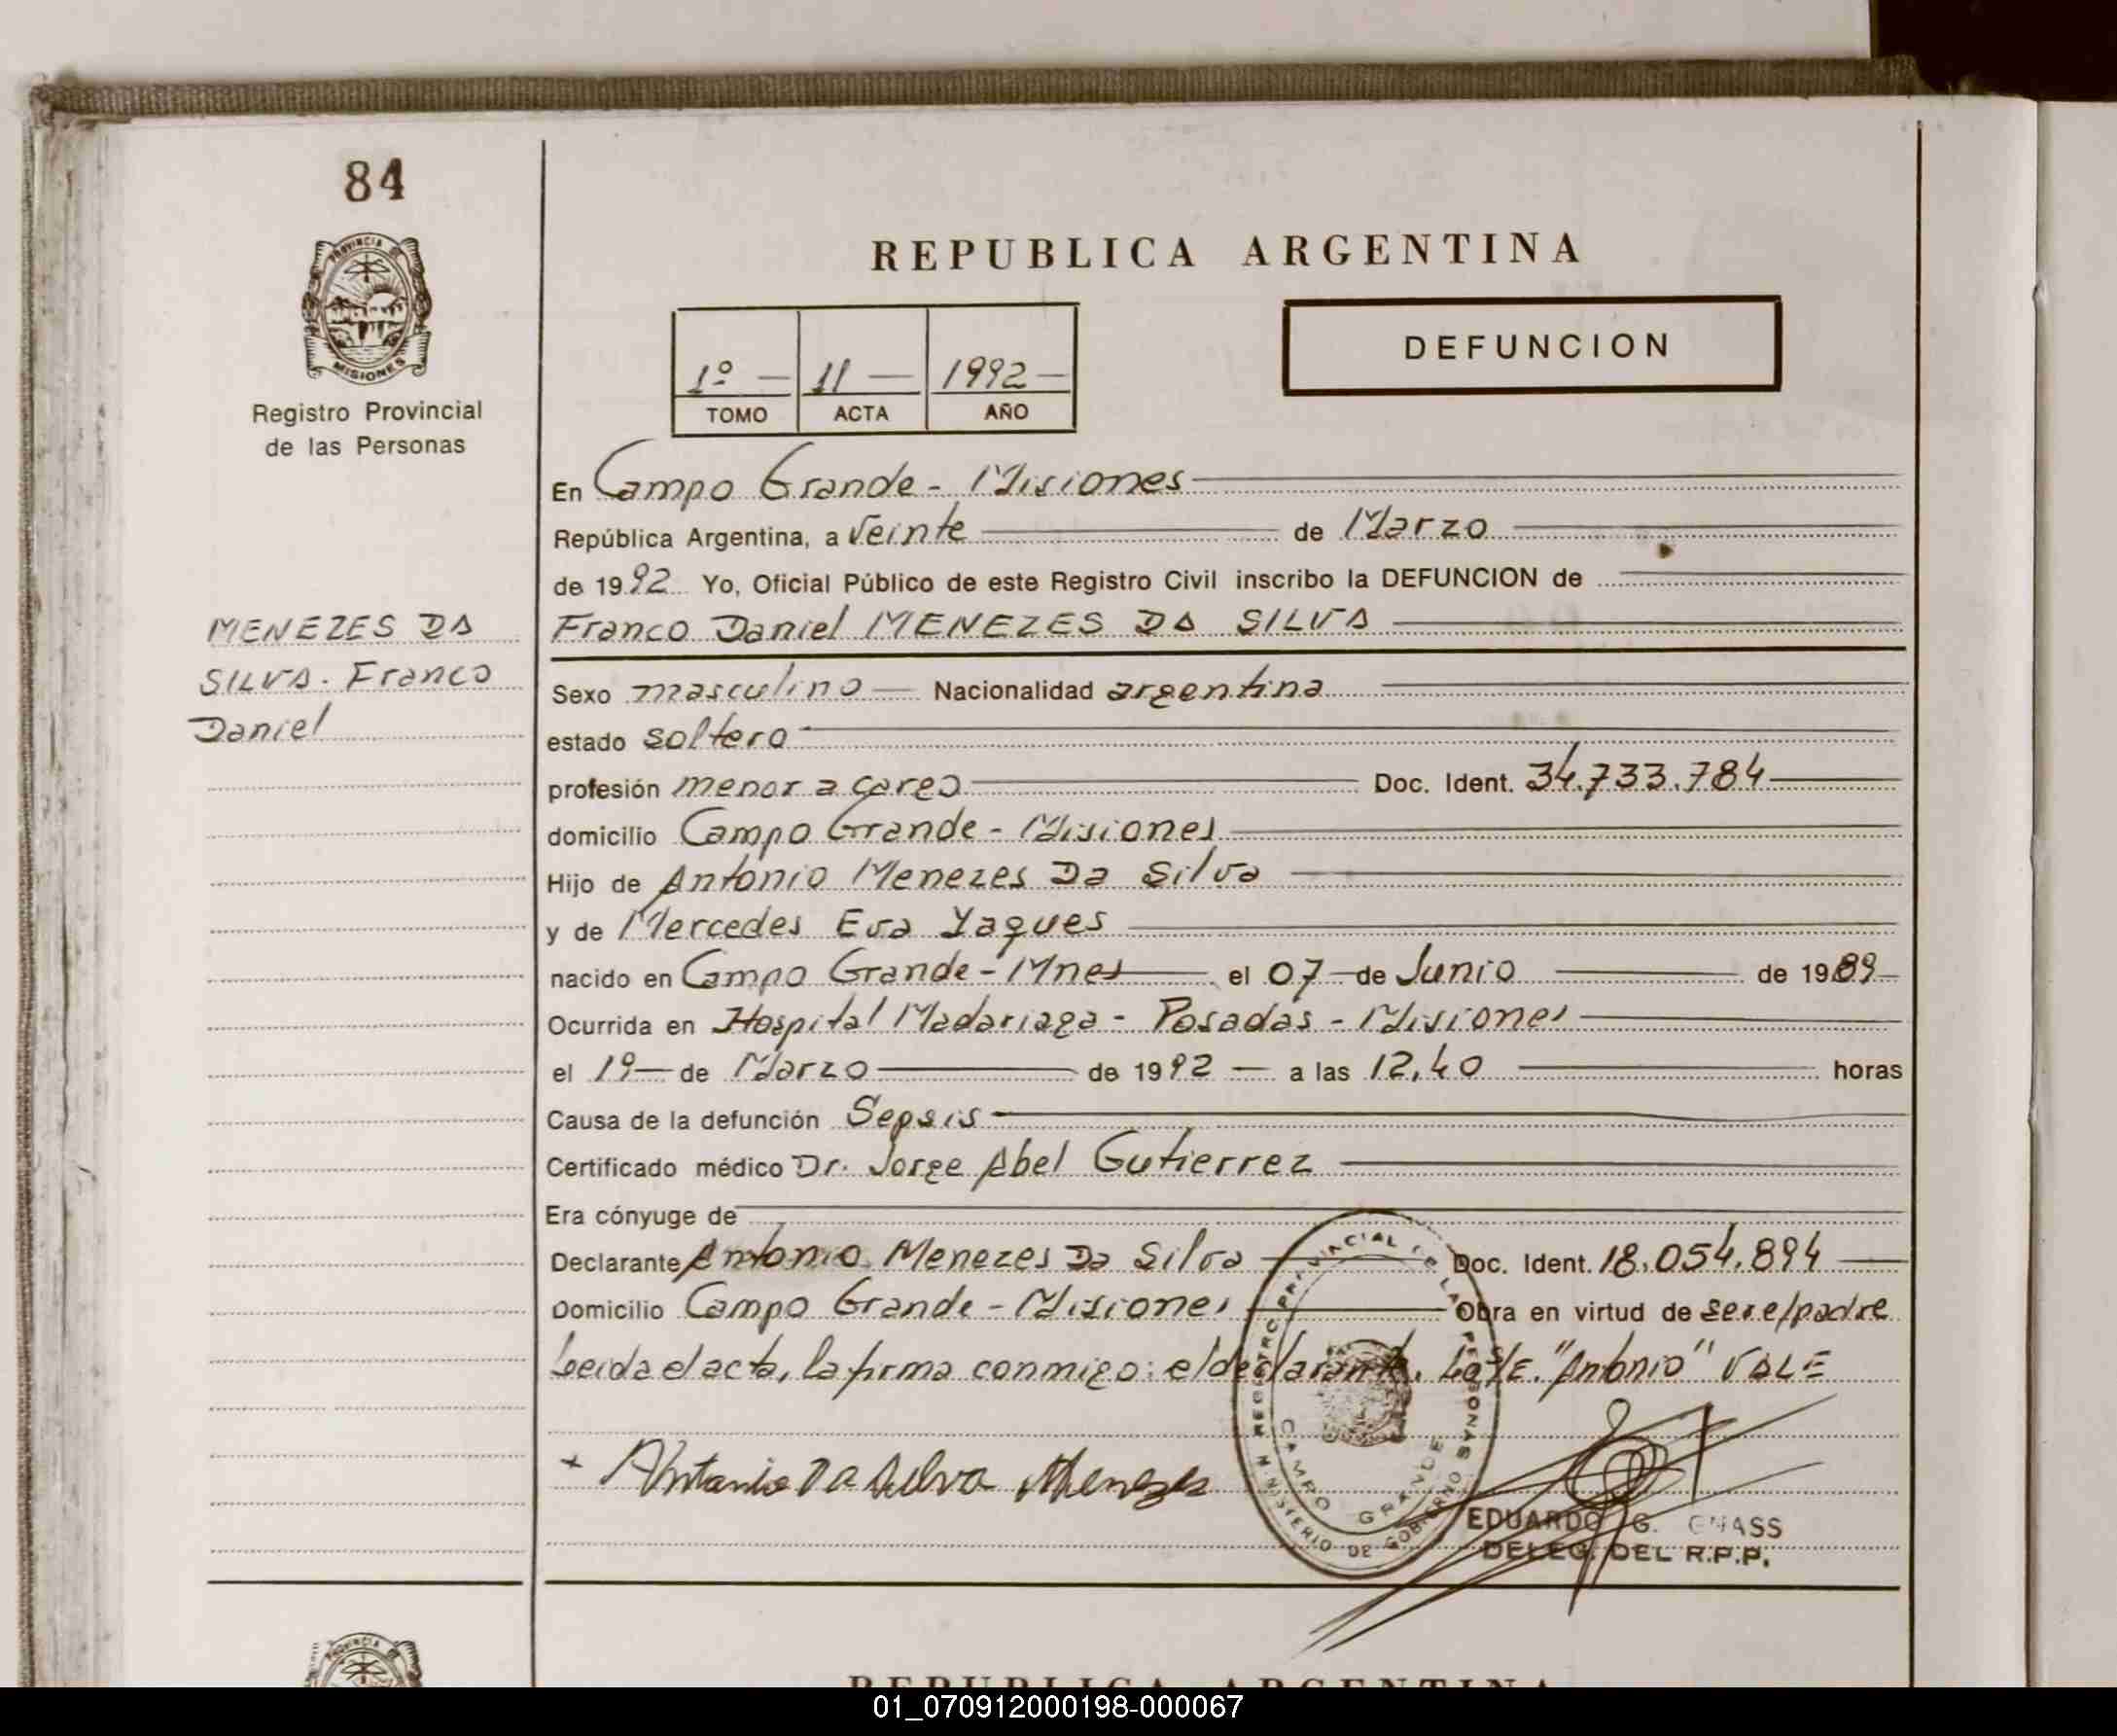 84
PROVINCIA
MISIONES
Registro Provincial
de las Personas
REPUBLICA ARGENTINA
1º — 11 — 1992 —
TOMO ACTA AÑO
DEFUNCION
En Campo Grande - Misiones
República Argentina, a Veinte de Marzo
de 1992 Yo, Oficial Público de este Registro Civil inscribo la DEFUNCION de
Franco Daniel MENEZES DA SILVA
MENEZES DA
SILVA. Franco
Daniel
Sexo masculino — Nacionalidad argentina
estado soltero
profesión menor a cargo Doc. Ident. 34.733.784
domicilio Campo Grande - Misiones
Hijo de Antonio Menezes Da Silva
y de Mercedes Eva Yaques
nacido en Campo Grande - Mnes el 07 de Junio de 1989
Ocurrida en Hospital Madariaga - Posadas - Misiones
el 19 de Marzo de 1992 — a las 12,40 horas
Causa de la defunción Sepsis
Certificado médico Dr. Jorge Abel Gutierrez
Era cónyuge de
Declarante Antonio Menezes Da Silva Doc. Ident. 18.054.894
Domicilio Campo Grande - Misiones Obra en virtud de ser el padre
Leida el acta, la firma conmigo: el declarante. Lo s/E. "Antonio" VALE
+ Antonio Da Silva Menezes
REGISTRO PROVINCIAL DE LAS PERSONAS
MINISTERIO DE GOBIERNO
CAMPO GRANDE
EDUARDO G. GNASS
DELEG. DEL R.P.P.
PROVINCIA
REPUBLICA ARGENTINA
01_070912000198-000067